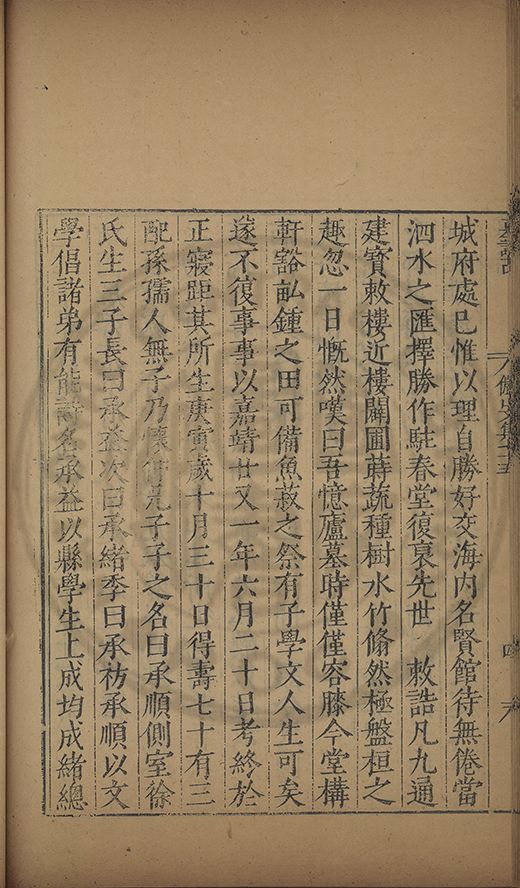 城府處已惟以理自勝好交海内名賢館待無倦當
泗水之匯擇勝作駐春堂復裒先世 敕誥凡九通
建寳敕樓近樓闢圃蒔蔬種樹水竹翛然極盤桓之
趣忽一日慨然嘆曰吾憶廬墓時僅僅容膝今堂構
軒豁畝鍾之田可備魚菽之祭有子學文人生可矣
遂不復事事以嘉靖廿又一年六月二十日考終於
正寢距其所生庚寅歲十月三十日得壽七十有三
配孫孺人無子乃懷仲兄子子之名曰承順側室徐
氏生三子長曰承益次曰承緒季曰承祊承順以文
學倡諸弟有能詩名承益以縣學生上成均成緒總
四